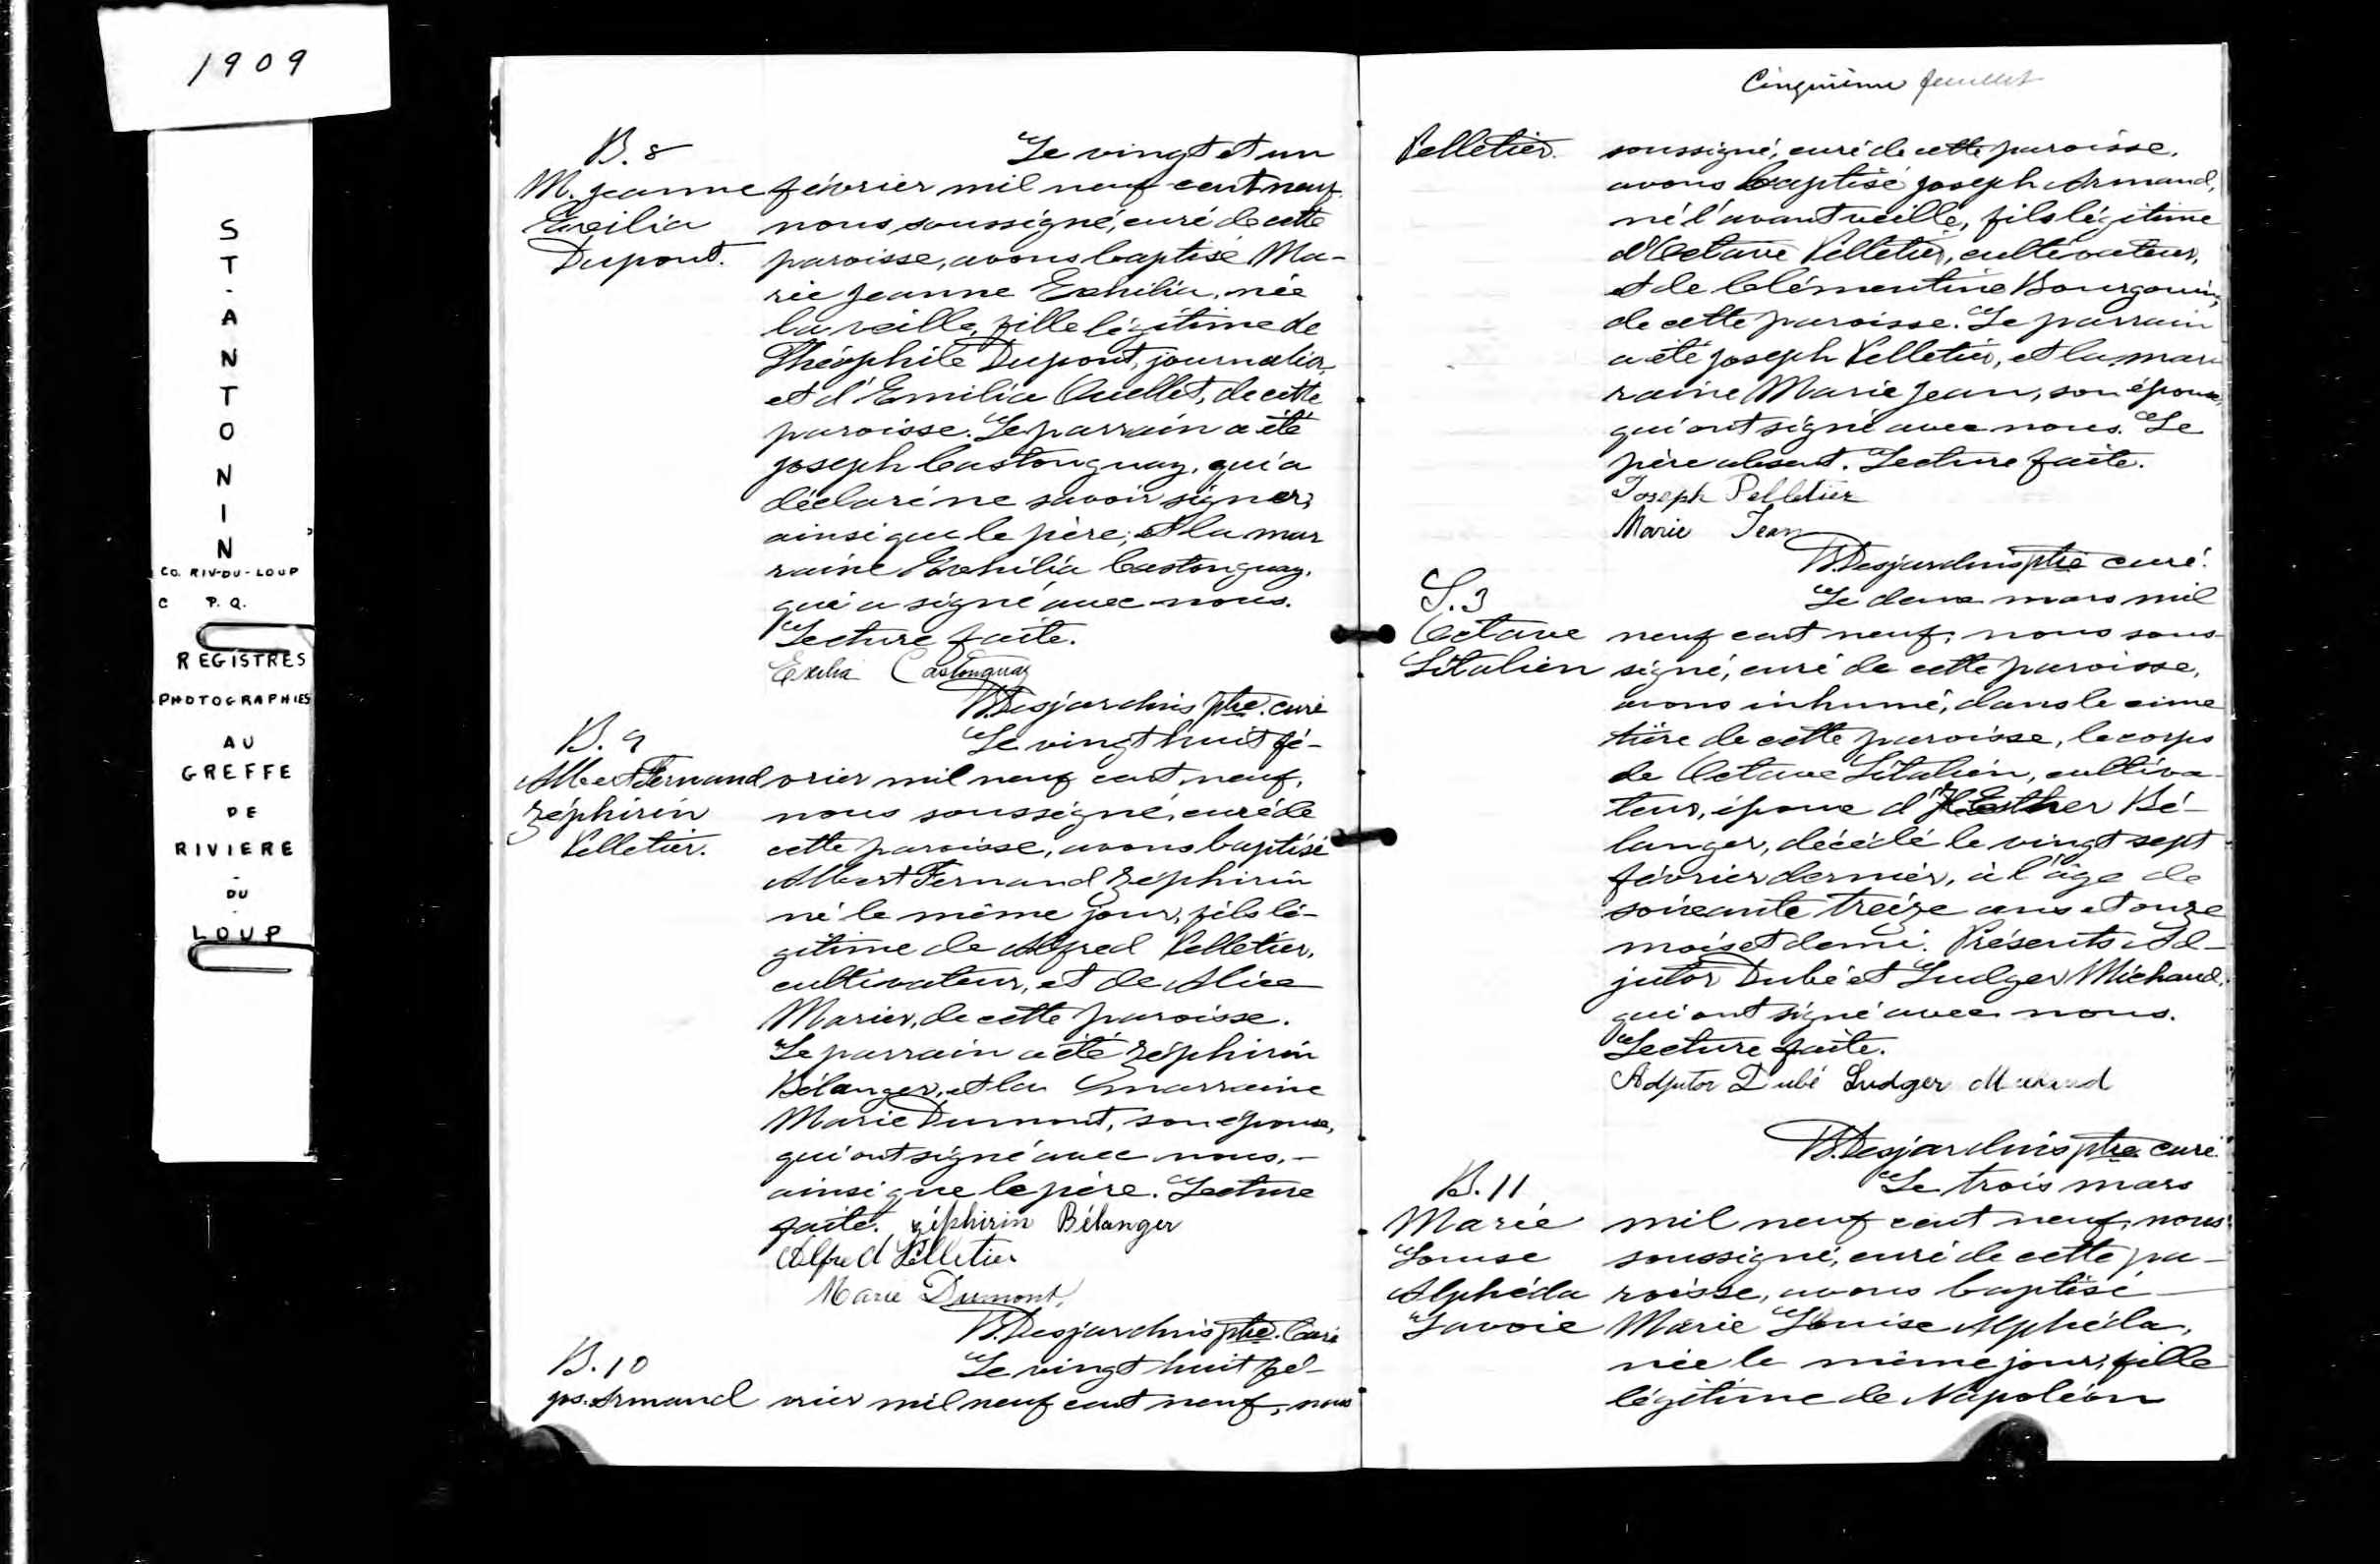 1909
ST-ANTONIN
CO. RIV-DU-LOUP
C P.Q.
REGISTRES
PHOTOGRAPHIES
AU
GREFFE
DE
RIVIERE
-
DU
-
LOUP
B. 8
M. Jeanne
Exilia
Dupont.
Le vingt et un
février mil neuf cent neuf
nous soussigné, curé de cette
paroisse, avons baptisé Ma-
rie Jeanne Exhilia, née
la veille, fille légitime de
Théophile Dupont, journalier,
et d'Emilia Ouellet, de cette
paroisse. Le parrain a été
Joseph Castonguay, qui a
déclaré ne savoir signer,
ainsi que le père; et la mar
raine Exhilia Castonguay,
qui a signé avec nous.
Lecture faite.
Exilia Castonguay
B. Desjardins ptre. curé
B. 9
Albert Fernand
Zéphirin
Pelletier.
Le vingt huit fé-
vrier mil neuf cent neuf,
nous soussigné, curé de
cette paroisse, avons baptisé
Albert Fernand Zéphirin
né le même jour, fils lé-
gitime de Alfred Pelletier,
cultivateur, et de Alice
Marier, de cette paroisse.
Le parrain a été Zéphirin
Bélanger, et la marraine
Marie Dumont, son épouse,
qui ont signé avec nous, -
ainsi que le père. Lecture
faite. Zéphirin Bélanger
Alfred Pelletier
Marie Dumont,
B. Desjardins ptre. Curé
B. 10
Jos. Armand
Le vingt huit fé-
vrier mil neuf cent neuf, nous
Cinquième feuillet
Pelletier.
soussigné, curé de cette paroisse,
avons baptisé Joseph Armand,
né l'avant veille, fils légitime
d'Octave Pelletier, cultivateur,
et de Clémentine Bourgouin,
de cette paroisse. Le parrain
a été Joseph Pelletier, et la mar
raine Marie Jean, son épouse,
qui ont signé avec nous. Le
père absent. Lecture faite.
Joseph Pelletier
Marie Jean
B. Desjardins ptre curé.
S. 3
Octave
Litalien
Le deux mars mil
neuf cent neuf, nous sous-
signé, curé de cette paroisse,
avons inhumé, dans le cime
tière de cette paroisse, le corps
de Octave Litalien, cultiva-
teur, époux d'Esther Bé-
langer, décédé le vingt sept
février dernier, à l'âge de
soixante treize ans et onze
mois et demi. Présents Ad-
jutor Dubé et Ludger Michaud,
qui ont signé avec nous.
Lecture faite.
Adjutor Dubé Ludger Michaud
B. Desjardins ptre curé.
B. 11
Marie
Louise
Alphéda
Lavoie
Le trois mars
mil neuf cent neuf, nous
soussigné, curé de cette pa-
roisse, avons baptisé
Marie Louise Alphéda,
née le même jour, fille
légitime de Napoléon